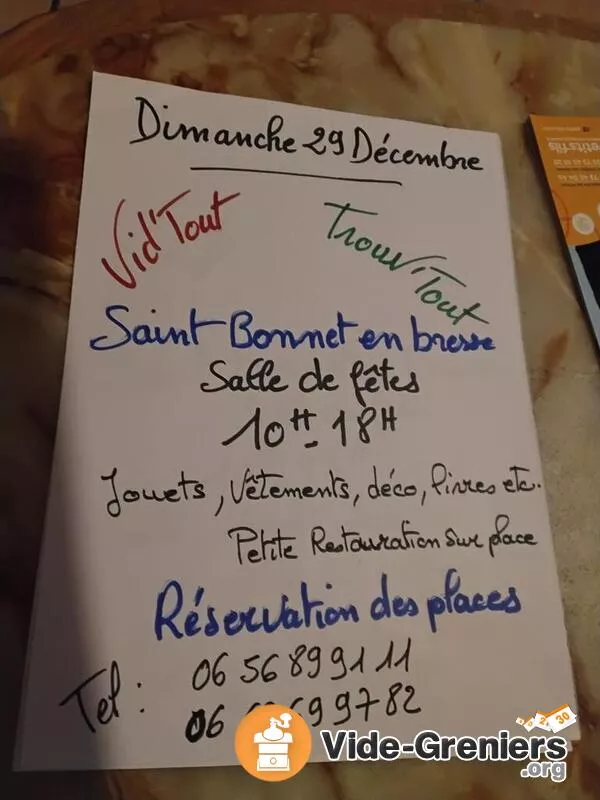 Dimanche 29 Décembre
Vid'Tout
Trouv'Tout
Saint Bonnet en bresse
Salle de fêtes
10H - 18H
Jouets, Vêtements, déco, livres etc.
Petite Restauration sur place
Réservation des places
Tel : 06 56 89 91 11
06 69 97 82
etitsfils
Vide-Greniers
.org
30